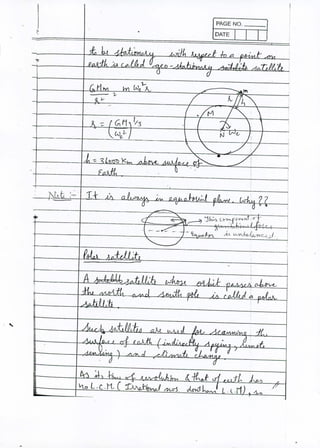 PAGE NO.
DATE
to be stationary with respect to a point on
earth is called geo-stationary satellite
GMm = m ωe² r
r²
r = (GM/ωe²)^1/3
h = 36000 Km above surface of
Earth
r h m
M
N ωe
Note :- It is always in equatorial plane. Why??
This component of
gravitational force
is unbalanced
Equator
Polar satellite
A satellite whose orbit passes above
the north and south pole is called a polar
satellite.
Such satellites are used for scanning the
surface of earth (indirectly spying, remote
sensing) and climate change.
As its time of revolution & that of earth has
no L.C.M. ( Irrational nos. don't have L.C.M), so